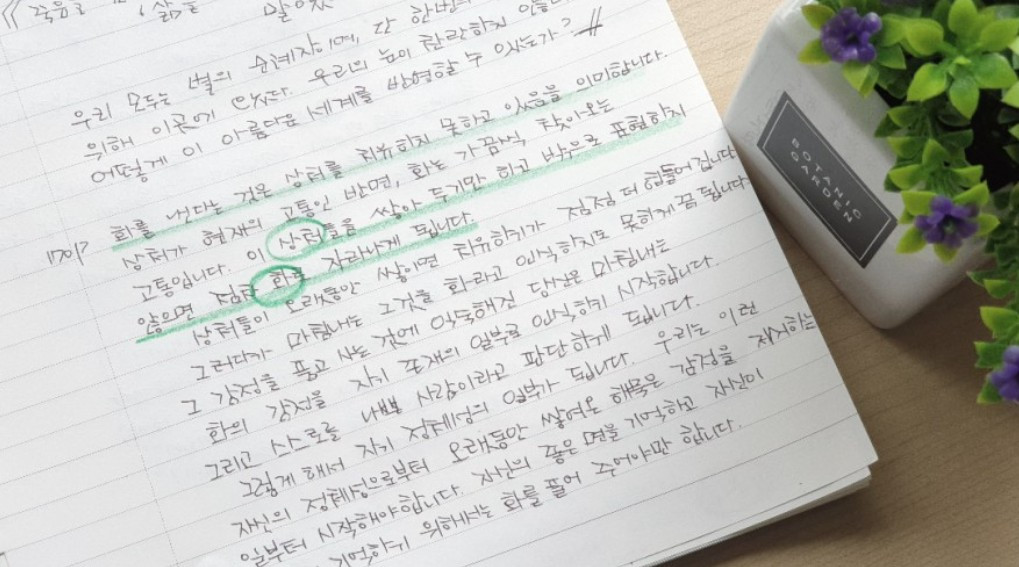 우리 모두는 별의 순례자이며, 단 한번의
위해 이곳에 와있다. 우리의 눈이 찬란하지 않다면
어떻게 이 아름다운 세계를 반영할 수 있는가?
화를 낸다는 것은 상처를 치유하지 못하고 있음을 의미합니다.
상처가 현재의 고통인 반면, 화는 가끔씩 찾아오는
고통입니다. 이 상처들을 쌓아 두기만 하고 밖으로 표현하지
않으면 점점 화로 자라나게 됩니다.
상처들이 오래동안 쌓이면 치유하기가 점점 더 힘들어 집니다
그러다가 마침내는 그것을 화라고 인식하지도 못하게끔 됩니다
그 감정을 품고 사는 것에 익숙해진 당신은 마침내는
화의 감정을 자기 존재의 일부로 인식하기 시작합니다.
그리고 스스로를 나쁜 사람이라고 판단하게 됩니다.
그렇게 해서 자기 정체성의 일부가 됩니다. 우리는 이런
자신의 정체성으로부터 오래동안 쌓여온 해묵은 감정을 제거하는
일부터 시작해야합니다. 자신의 좋은 면을 기억하고 자신이
기억하기 위해서는 화를 풀어 주어야만 합니다.
BOTANIC
GARDEN